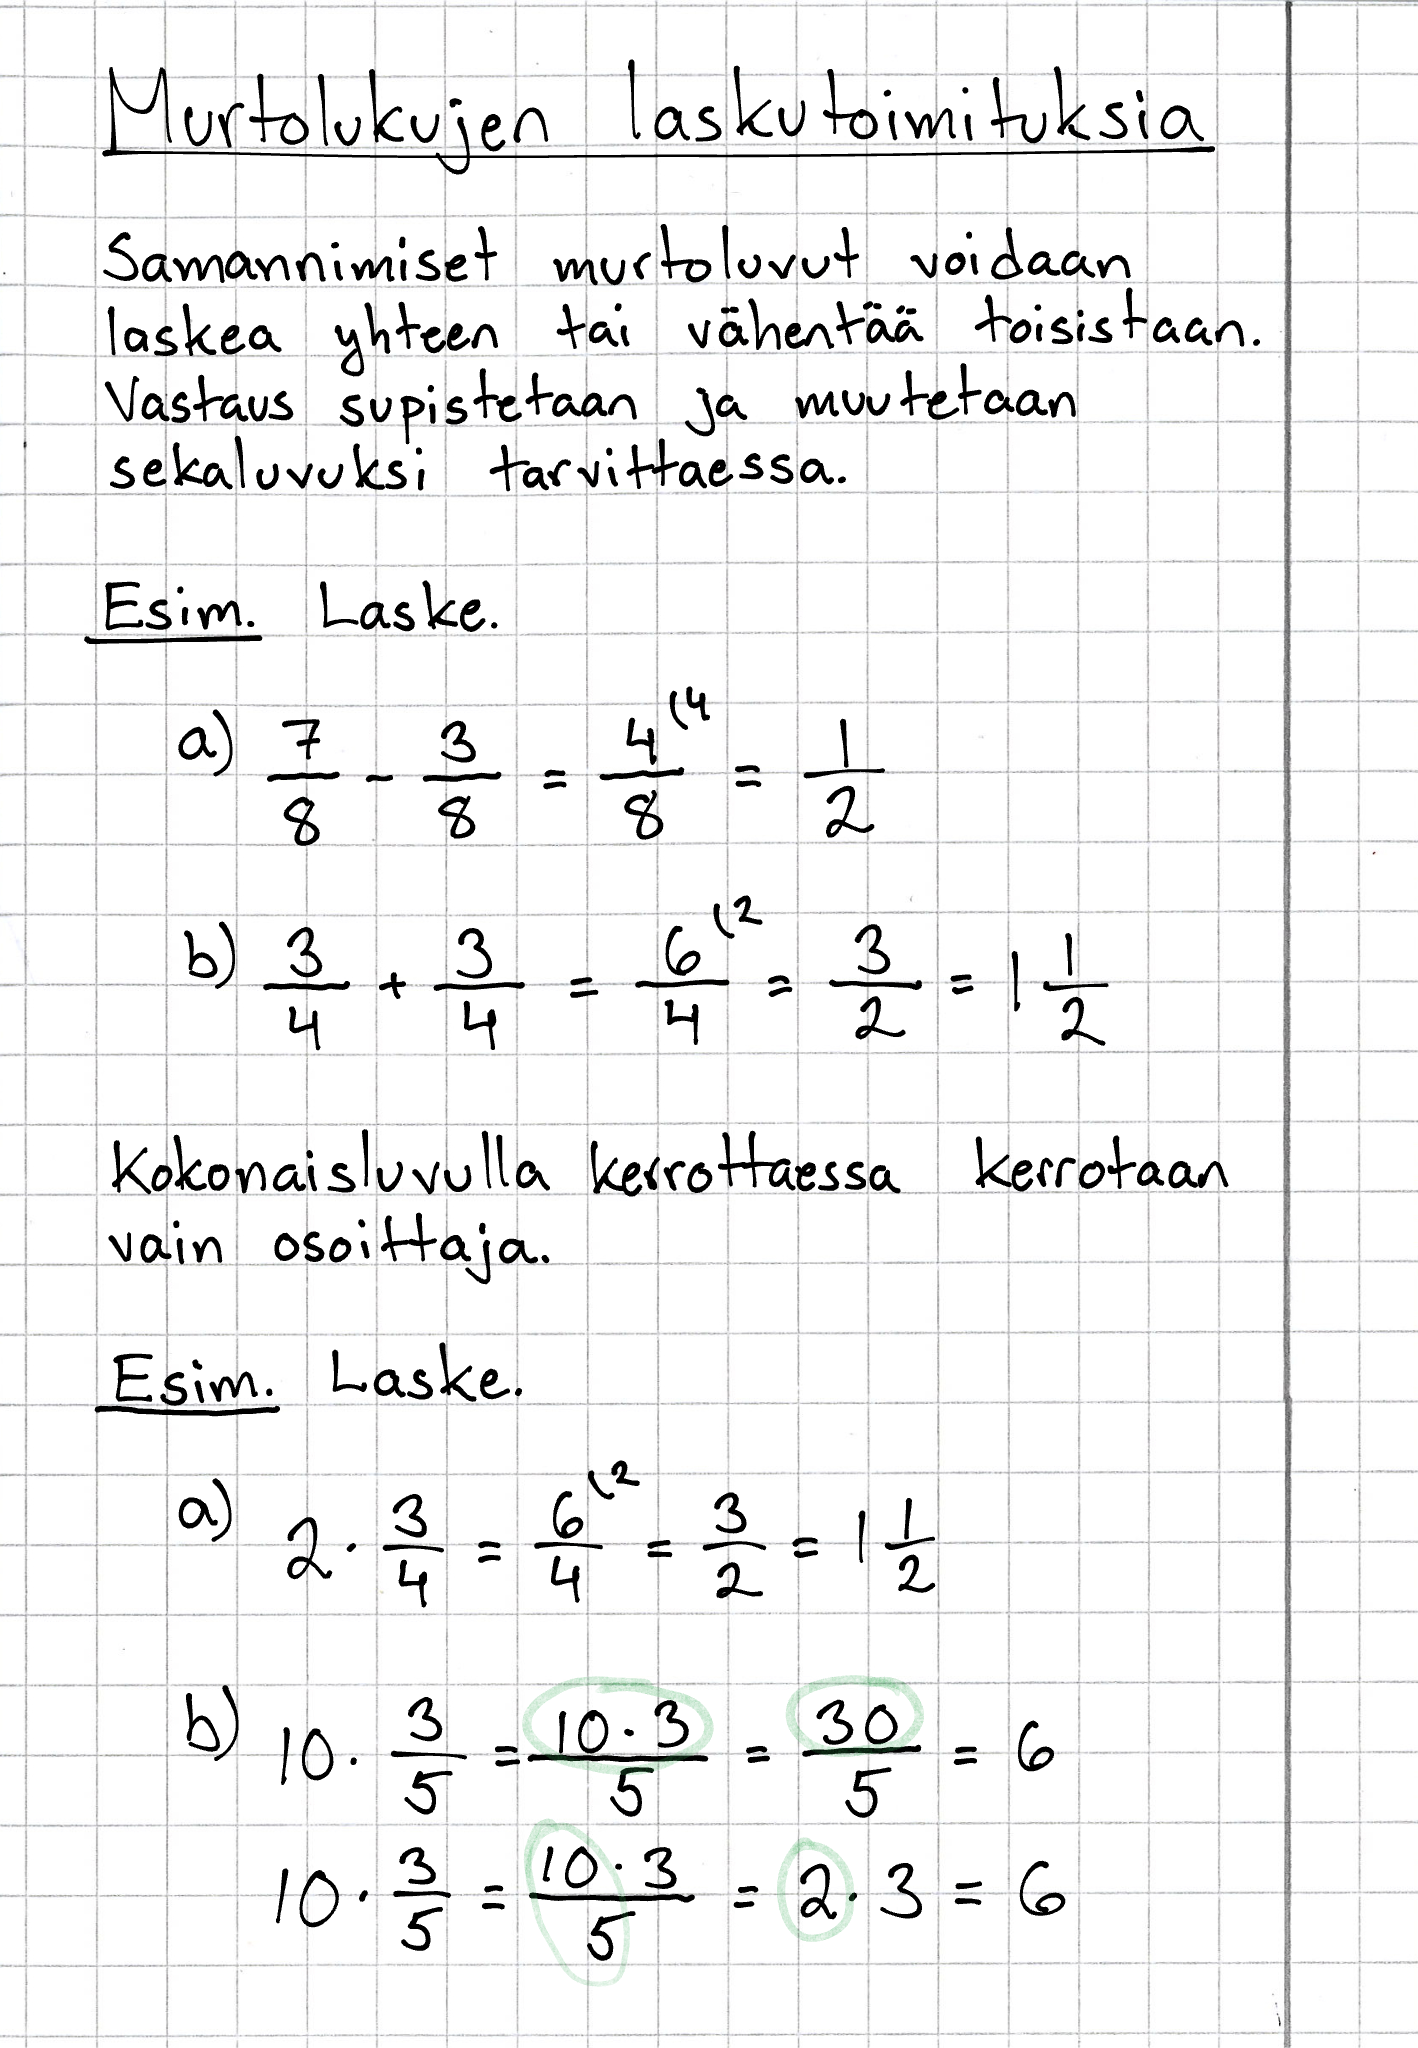 Murtolukujen laskutoimituksia
Samannimiset murtoluvut voidaan
laskea yhteen tai vähentää toisistaan.
Vastaus supistetaan ja muutetaan
sekaluvuksi tarvittaessa.
Esim. Laske.
a) 7/8 - 3/8 = 4/8 (4 = 1/2
b) 3/4 + 3/4 = 6/4 (2 = 3/2 = 1 1/2
Kokonaisluvulla kerrottaessa kerrotaan
vain osoittaja.
Esim. Laske.
a) 2 · 3/4 = 6/4 (2 = 3/2 = 1 1/2
b) 10 · 3/5 = 10 · 3/5 = 30/5 = 6
10 · 3/5 = 10 · 3/5 = 2 · 3 = 6